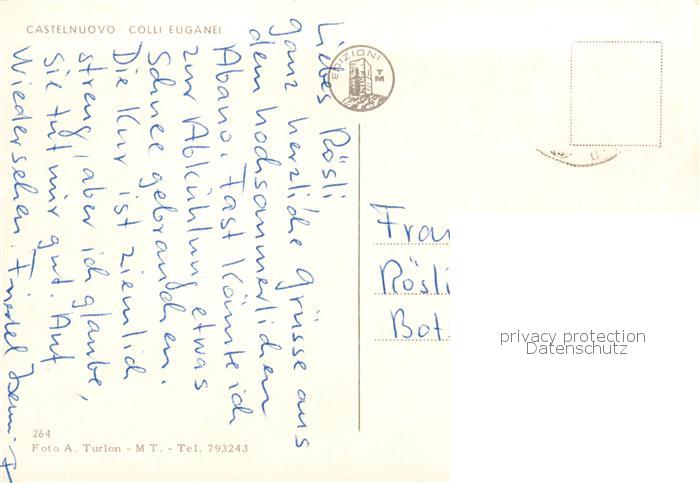 CASTELNUOVO COLLI EUGANEI
Liebes Rösli
ganz herzliche Grüsse aus
dem hochsommerlichen
Abano. Fast könnte ich
zur Abkühlung etwas
Schnee gebrauchen.
Die Kur ist ziemlich
streng, aber ich glaube,
sie tut mir gut. Auf
Wiedersehen. Friedel
EDIZIONI
TM
Frau
Rösli
Bot
privacy protection
Datenschutz
264
Foto A. Turlon - M T. - Tel. 793243